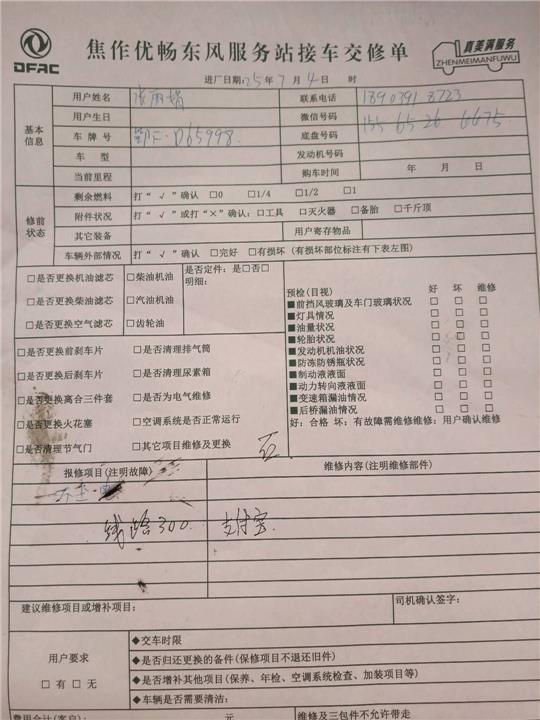 DFAC
焦作优畅东风服务站接车交修单
真美满服务
ZHENMEIMANFUWU
进厂日期:25年7月4日 时
基本信息
用户姓名 张丽娟 联系电话
用户生日 微信号码 155 65 26 6675
车牌号 D65998. 底盘号码
车型 发动机号码
当前里程 购车时间 年 月 日
修前状态
剩余燃料 打“√”确认 □0 □1/4 □1/2 □1
附件状况 打“√”或打“×”确认:□工具 □灭火器 □备胎 □千斤顶
其它装备 用户寄存物品
车辆外部情况 打“√”确认 □完好 □有损坏 (有损坏部位标注有下表左图)
□是否更换机油滤芯 □柴油机油 是否定件: 是□否□
明细:
□是否更换柴油滤芯 □汽油机油
□是否更换空气滤芯 □齿轮油
预检(目视) 好 坏 维修
■前挡风玻璃及车门玻璃状况 □ □ □
■灯具情况 □ □ □
■油量状况 □ □ □
■轮胎状况 □ □ □
■发动机机油状况 □ □ □
■防冻防锈瓶状况 □ □ □
■制动液液面 □ □ □
■动力转向液液面 □ □ □
■变速箱漏油情况 □ □ □
■后桥漏油情况 □ □ □
好: 合格 坏: 有故障需维修维修: 用户确认维修
□是否更换前刹车片 □是否清理排气筒
□是否更换后刹车片 □是否清理尿素箱
□是否更换离合三件套 □是否为电气维修
□是否更换火花塞 □空调系统是否正常运行
□是否清理节气门 □其它项目维修及更换
报修项目(注明故障) 维修内容(注明维修部件)
线路300. 支付宝.
建议维修项目或增补项目: 司机确认签字:
用户要求
□有 □无
◆交车时限
◆是否归还更换的备件(保修项目不退还旧件)
◆是否增补其他项目(保养、年检、空调系统检查、加装项目等)
◆车辆是否需要清洁:
费用合计(客户): 元 维修及三包件不允许带走